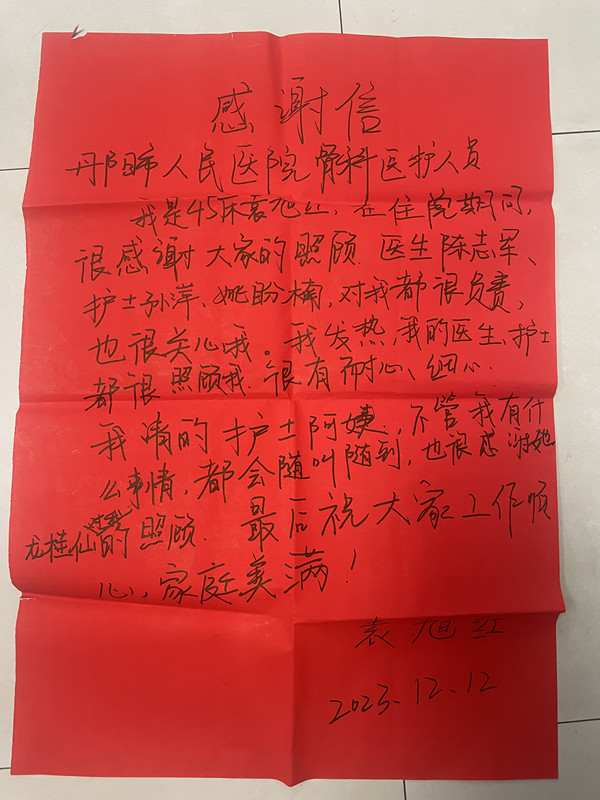 感谢信
丹阳市人民医院骨科医护人员
我是45床袁旭红，在住院期间，
很感谢大家的照顾.医生陈志军、
护士孙萍、姚盼楠，对我都很负责，
也很关心我。我发热，我的医生、护士
都很照顾我.很有耐心、细心.
我请的护士阿姨，不管我有什
么事情，都会随叫随到，也很感谢她
龙桂仙对我的照顾.最后祝大家工作顺
心，家庭美满！
袁旭红
2023.12.12